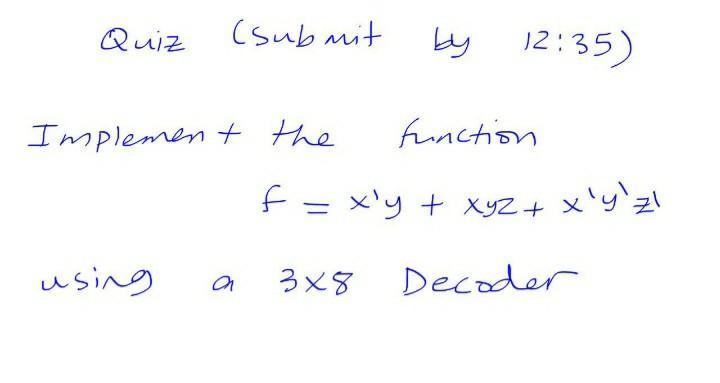 Quiz (submit by 12:35)
Implement the function
f = x'y + xyz + x'y'z'
using a 3x8 Decoder